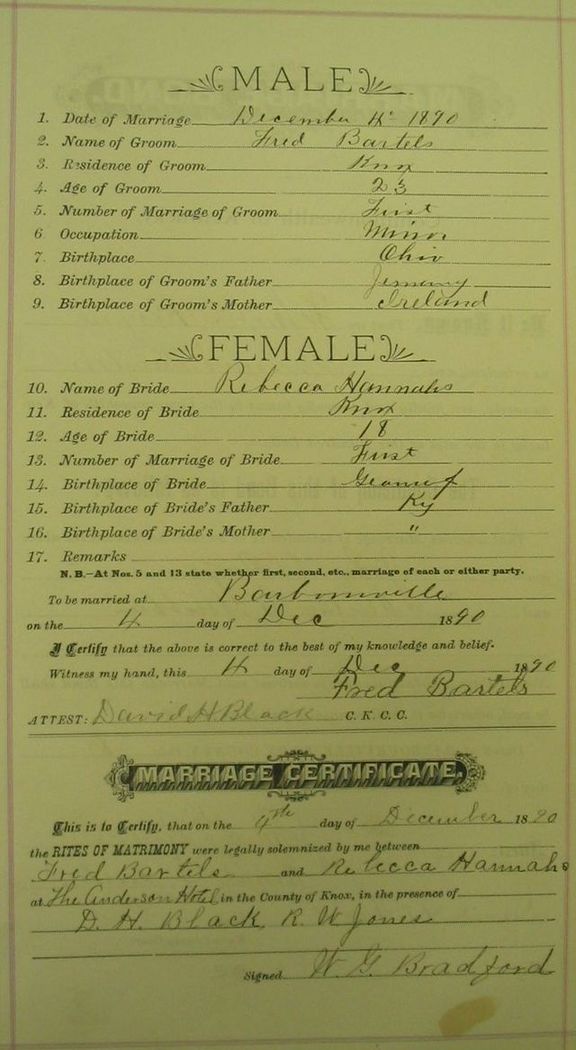 MALE
1. Date of Marriage December 4" 1890
2. Name of Groom Fred Bartels
3. Residence of Groom Knox
4. Age of Groom 23
5. Number of Marriage of Groom First
6 Occupation Minor
7. Birthplace Ohio
8. Birthplace of Groom's Father Jermany
9. Birthplace of Groom's Mother Ireland
FEMALE
10. Name of Bride Rebecca Hannahs
11. Residence of Bride Knox
12. Age of Bride 18
13. Number of Marriage of Bride First
14. Birthplace of Bride
15. Birthplace of Bride's Father Ky
16. Birthplace of Bride's Mother "
17. Remarks
N. B.—At Nos. 5 and 13 state whether first, second, etc., marriage of each or either party.
To be married at Barbourville
on the 4 day of Dec 1890
I Certify that the above is correct to the best of my knowledge and belief.
Witness my hand, this 4 day of Dec 1890
Fred Bartels
ATTEST: David H Black C. K. C. C.
MARRIAGE CERTIFICATE.
This is to Certify, that on the 4th day of December 1890
the RITES OF MATRIMONY were legally solemnized by me between
Fred Bartels and Rebecca Hannahs
at The Anderson Hotel in the County of Knox, in the presence of
D. H. Black, R. W Jones
Signed W. G. Bradford